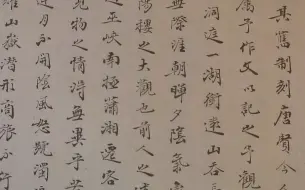 其舊制刻唐賢今
屬予作文以記之予觀
洞庭一湖銜遠山吞
無際涯朝暉夕陰氣
陽樓之大觀也前人之
通巫峽南極瀟湘遷客
覽物之情得無異乎
連月不開陰風怒號濁
山嶽潛形商旅不行